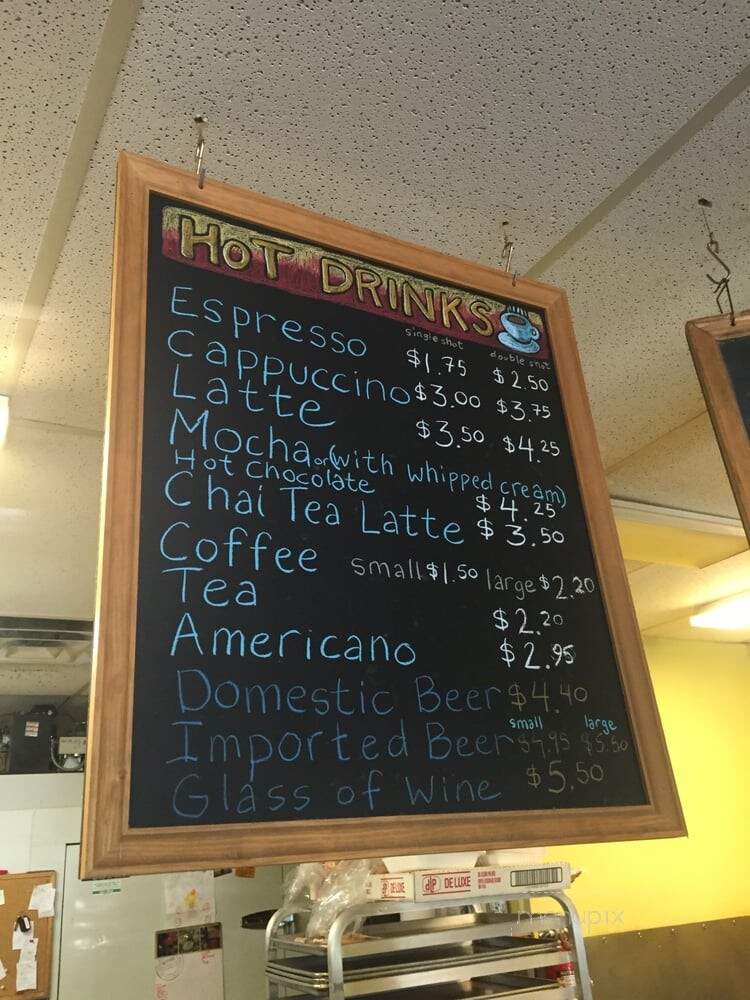 HOT DRINKS
single shot double shot
Espresso $1.75 $2.50
Cappuccino $3.00 $3.75
Latte $3.50 $4.25
Mocha or (with whipped cream)
Hot chocolate $4.25
Chai Tea Latte $3.50
Coffee small $1.50 large $2.20
Tea $2.20
Americano $2.95
Domestic Beer $4.40
small large
Imported Beer $4.95 $5.50
Glass of Wine $5.50
DELUXE
dlp DELUXE